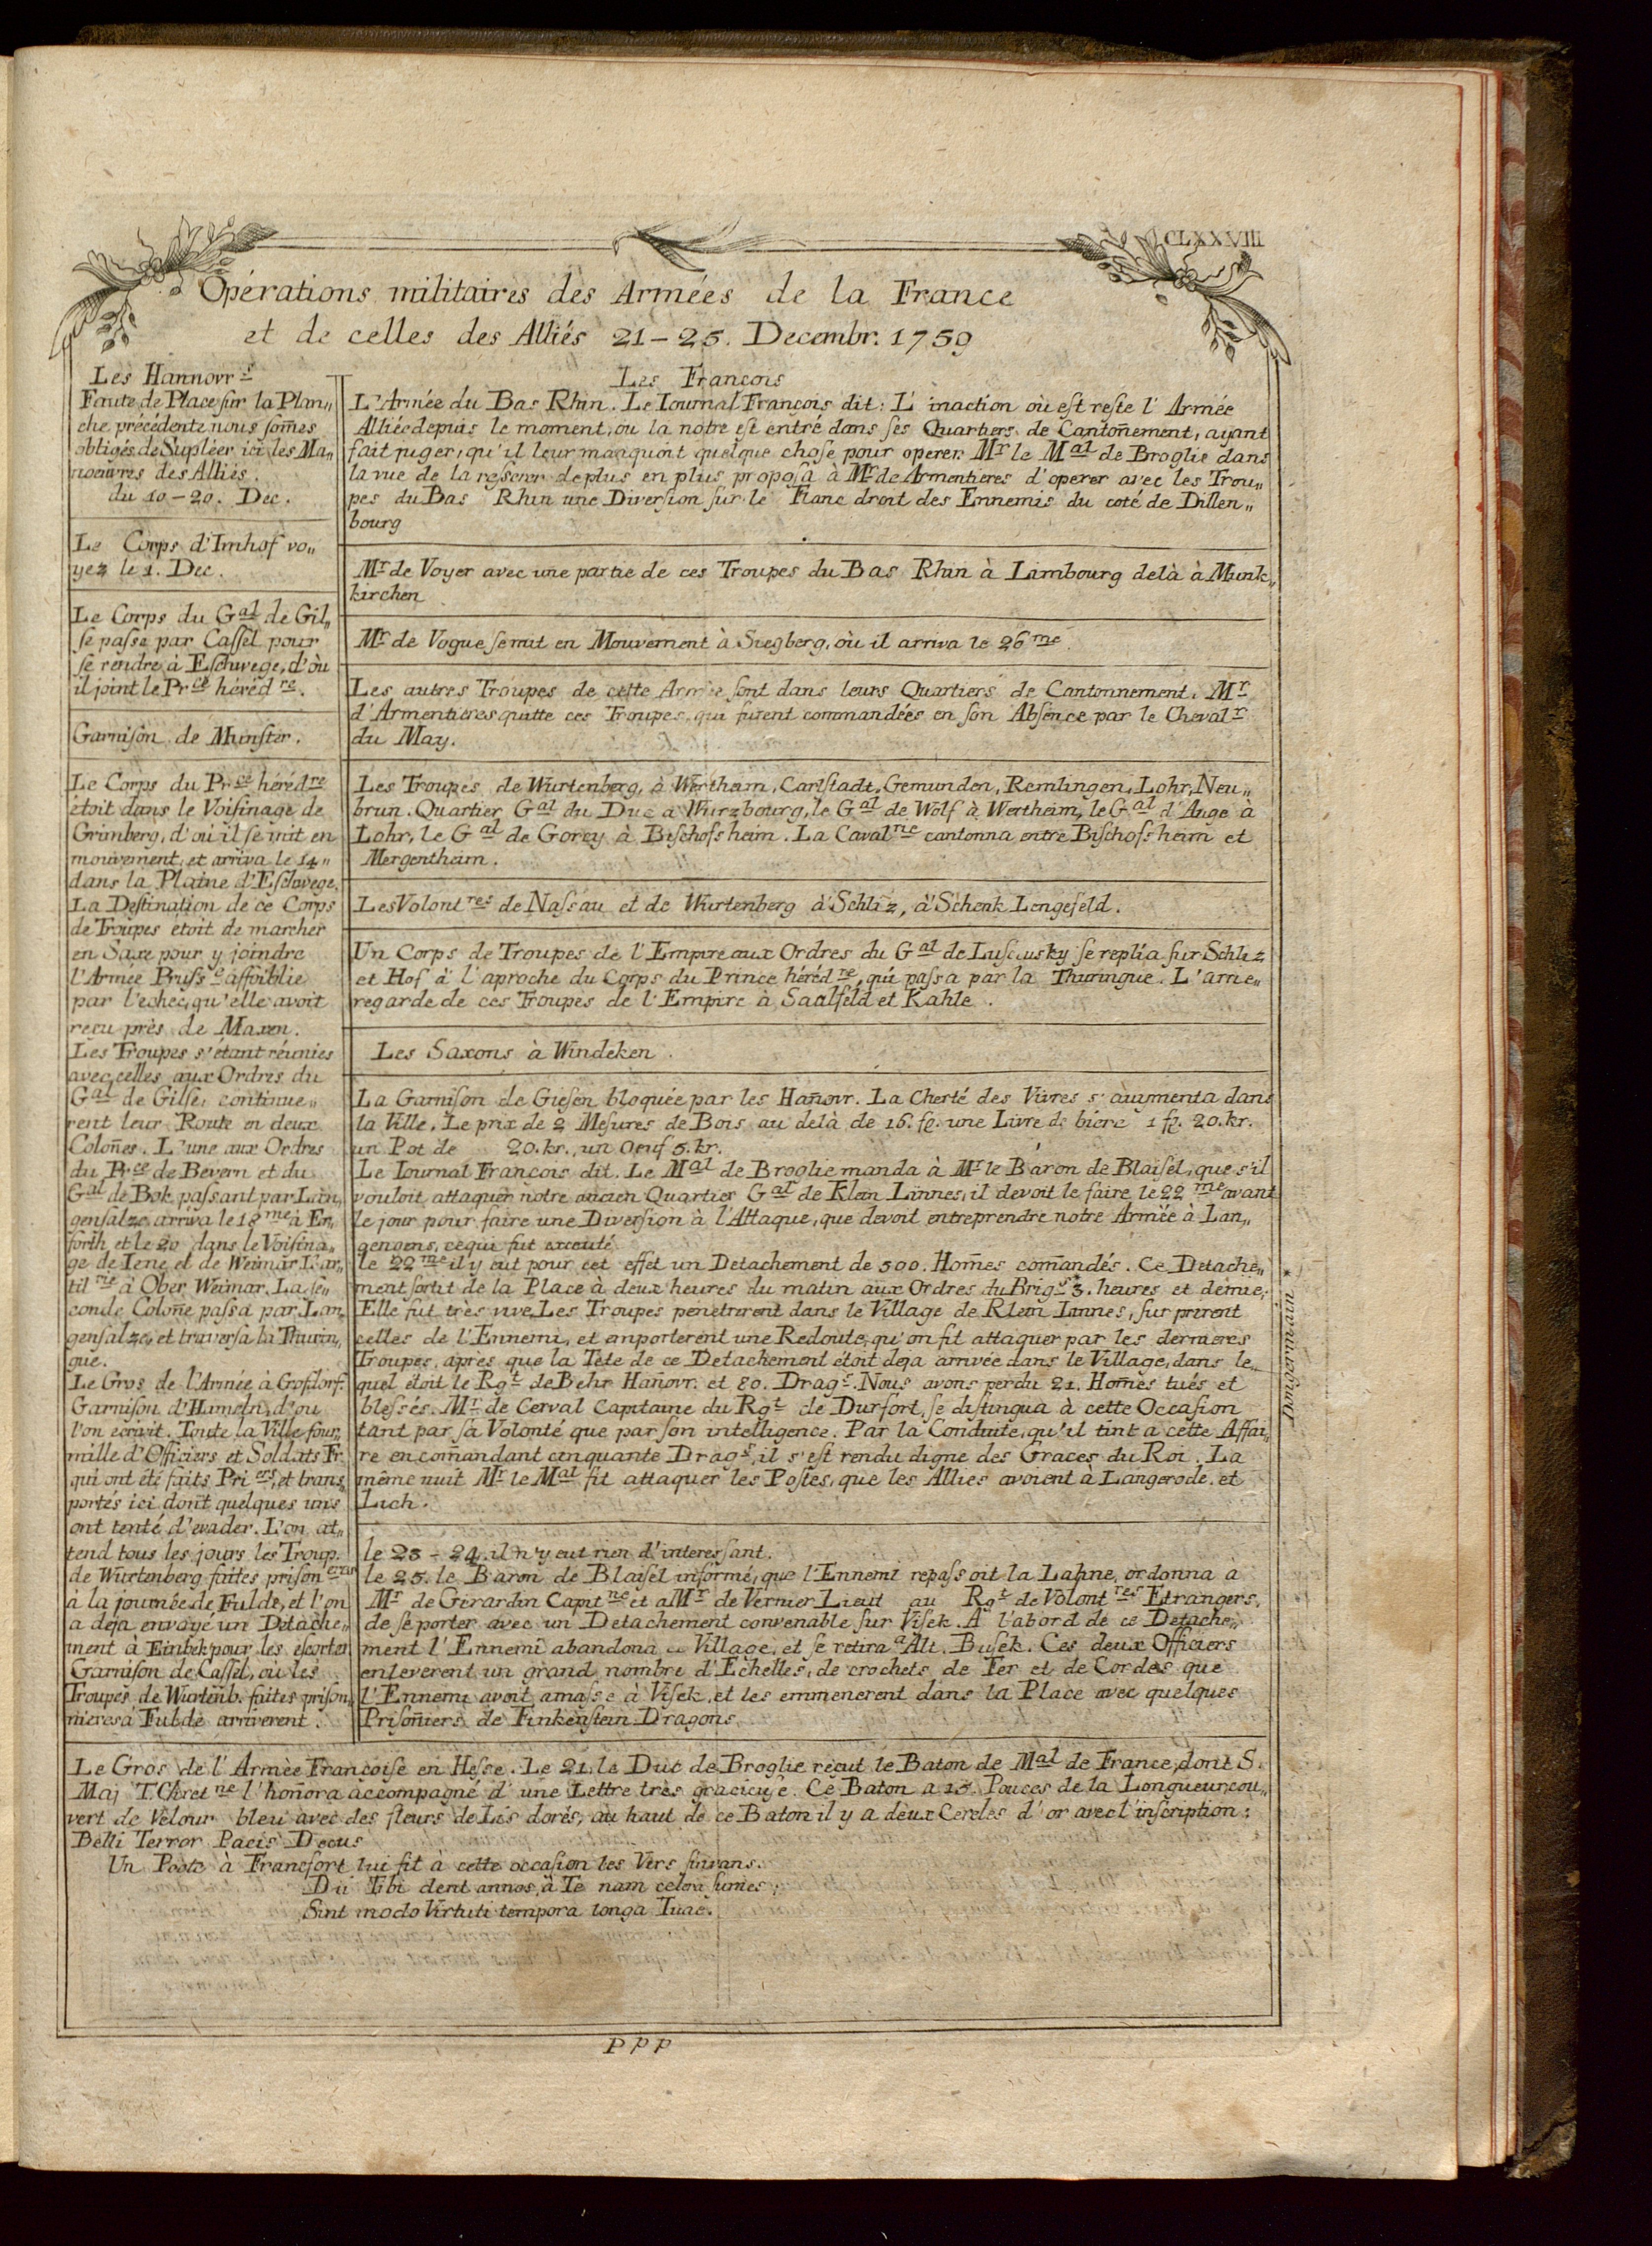 CLXXVIII
Opérations militaires des Armées de la France
et de celles des Alliés 21–25. Decembr. 1759
Les Hannovr.s
Faute de Place sur la Plan„
che précédente nous som̄es
obligés de Supléer ici les Ma„
noeuvres des Alliés.
du 10–20. Dec.
Le Corps d'Imhof vo„
yez le 1. Dec.
Le Corps du Gal de Gil„
se passe par Cassel pour
se rendre à Eschwege, d'où
il joint le Prce héréd re.
Garnison de Munster.
Le Corps du Prce héréd re
étoit dans le Voisinage de
Grimberg, d'où il se mit en
mouvement, et arriva le 14„
dans la Plaine d'Eschwege.
La Destination de ce Corps
de Troupes étoit de marcher
en Saxe pour y joindre
l'Armée Pruss e affoiblie
par l'echec, qu'elle avoit
reçu près de Maxen.
Les Troupes s'étant réunies
avec celles aux Ordres du
Gal de Gilse, continue„
rent leur Route en deux
Colon̄es. L'une aux Ordres
du Prce de Bevern et du
Gal de Bok passant par Lan„
gensalze arriva le 18me à Er„
forth, et le 20 dans le Voisina„
ge de Iene et de Weimar L'ar„
til rie à Ober Weimar. La se„
conde Colon̄e passa par Lan„
gensalze, et traversa la Thurin„
gue.
Le Gros de l'Armée à Crofdorf.
Garnison d'Hameln, d'ou
l'on écrivit. Toute la Ville four„
mille d'Officiers et Soldats Fr.
qui ont été faits Pri ers, et trans„
portés ici dont quelques uns
ont tenté d'evader. L'on at„
tend tous les jours les Troup.
de Wurtenberg faites prison eres
à la journée de Fulde, et l'on
a deja envoyé un Detache„
ment à Einbek pour les escorter
Garnison de Cassel, où les
Troupes de Wurtenb. faites prison„
nieres à Fulde arriverent.
Les François
L'Armée du Bas Rhin. Le Iournal François dit: L'inaction où est resté l'Armée
Alliée depuis le moment, ou la notre est entré dans ses Quartiers de Canton̄ement, ayant
fait juger, qu'il leur manquoit quelque chose pour operer. Mr le Mal de Broglie dans
la vue de la resserer de plus en plus proposa à Mr de Armentieres d'operer avec les Trou„
pes du Bas Rhin une Diversion sur le Flanc droit des Ennemis du coté de Dillen„
bourg
Mr de Voyer avec une partie de ces Troupes du Bas Rhin à Limbourg delà à Munk„
kirchen
Mr de Vogue se mit en Mouvement à Siegberg, où il arriva le 26me.
Les autres Troupes de cette Armée sont dans leurs Quartiers de Cantonnement. Mr
d'Armentieres quitte ces Troupes, qui furent commandées en son Absence par le Cheval r
du May.
Les Troupes de Wurtenberg, à Wertheim, Carlstadt, Gemunden, Remlingen, Lohr, Neu„
brun. Quartier Gal du Duc à Wurzbourg, le Gal de Wolf à Wertheim, le Gal d'Auge à
Lohr, le Gal de Gorcy à Bischofsheim. La Caval rie cantonna entre Bischofsheim et
Mergentheim.
Les Volont res de Nassau et de Wurtenberg à Schliz, à Schenk Lengsfeld.
Un Corps de Troupes de l'Empire aux Ordres du Gal de Luscinsky se replia sur Schliz
et Hof à l'aproche du Corps du Prince héréd re, qui passa par la Thuringue. L'arrie„
regarde de ces Troupes de l'Empire à Saalfeld et Kahle.
Les Saxons à Windeken.
La Garnison de Giesen bloquée par les Han̄ovr. La Cherté des Vivres s'augmenta dans
la Ville. Le prix de 2 Mesures de Bois au delà de 16. fl. une Livre de biere 1 fl. 20. kr.
un Pot de 20. kr., un Oeuf 5. kr.
Le Iournal François dit. Le Mal de Broglie manda à Mr le Baron de Blaisel, que s'il
vouloit attaquer notre ancien Quartier Gal de Klein Linnes, il devoit le faire le 22 me avant
le jour pour faire une Diversion à l'Attaque, que devoit entreprendre notre Armée à Lan„
gengens, ce qui fut executé
le 22me il y eut pour cet effet un Detachement de 500. Hom̄es com̄andés. Ce Detache„
ment sortit de la Place à deux heures du matin aux Ordres du Brig r* 3. heures et demie.
Elle fut très vive. Les Troupes penetrerent dans le Village de Klein Linnes, surprirent
celles de l'Ennemi, et emporterent une Redoute, qu'on fit attaquer par les dernieres
Troupes, après que la Tête de ce Detachement étoit deja arrivée dans le Village, dans le
quel étoit le Rgt de Behr Han̄ovr. et 80. Drag s. Nous avons perdu 21. Hom̄es tués et
blessés. Mr de Cerval Capitaine du Rgt de Durfort, se distingua à cette Occasion
tant par sa Volonté que par son intelligence. Par la Conduite, qu'il tint a cette Affai„
re en com̄andant cinquante Drag s, il s'est rendu digne des Graces du Roi. La
même nuit Mr le Mal fit attaquer les Postes, que les Allies avoient à Langerode. et
Lich.
le 23–24. il n'y eut rien d'interessant.
le 25. le Baron de Blaisel informé, que l'Ennemi repassoit la Lahne, ordonna à
Mr de Girardin Capit ne et a Mr de Vernier Lieut au Rgt de Volont res Etrangers,
de se porter avec un Detachement convenable sur Visek. A l'abord de ce Detache„
ment l'Ennemi abandona ce Village, et se retira a Alt. Busek. Ces deux Officiers
enleverent un grand nombre d'Echelles, de crochets de Fer et de Cordes que
l'Ennemi avoit amassé à Visek, et les emmenerent dans la Place avec quelques
Prison̄iers de Finkenstein Dragons.
* Dingelmann
Le Gros de l'Armée Françoise en Hesse. Le 21. le Duc de Broglie reçut le Baton de Mal de France, dont S.
Maj T. Chret ne l'hon̄ora accompagné d'une Lettre très gracieuse. Ce Baton a 13. Pouces de la Longueur, cou„
vert de Velour bleu avec des fleurs de Lis dorés, au haut de ce Baton il y a deux Cercles d'or avec l'inscription:
Belli Terror Pacis Decus
Un Poete à Francfort lui fit à cette occasion les Vers suivans.
Dii Tibi dent annos, à Te nam cetera sumes;
Sint modo Virtuti tempora longa Tuae.
PPP